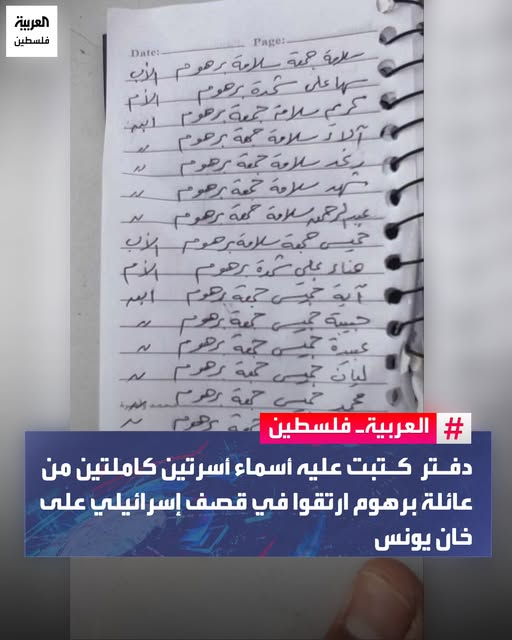 العربية
فلسطين
Date: Page:
سلامة جمعة سلامة برهوم الأب
سها علي شحدة برهوم الأم
كريم سلامة جمعة برهوم ابن
آلاء سلامة جمعة برهوم "
رغد سلامة جمعة برهوم "
شهد سلامة جمعة برهوم "
عبدالرحمن سلامة جمعة برهوم "
خميس جمعة سلامة برهوم الأب
هناء علي شحدة برهوم الأم
آية خميس جمعة برهوم ابنه
حبيبة خميس جمعة برهوم "
عبيدة خميس جمعة برهوم "
ليان خميس جمعة برهوم "
محمد خميس جمعة برهوم
جمعة برهوم "
# العربية - فلسطين
دفتر كتبت عليه أسماء أسرتين كاملتين من
عائلة برهوم ارتقوا في قصف إسرائيلي على
خان يونس